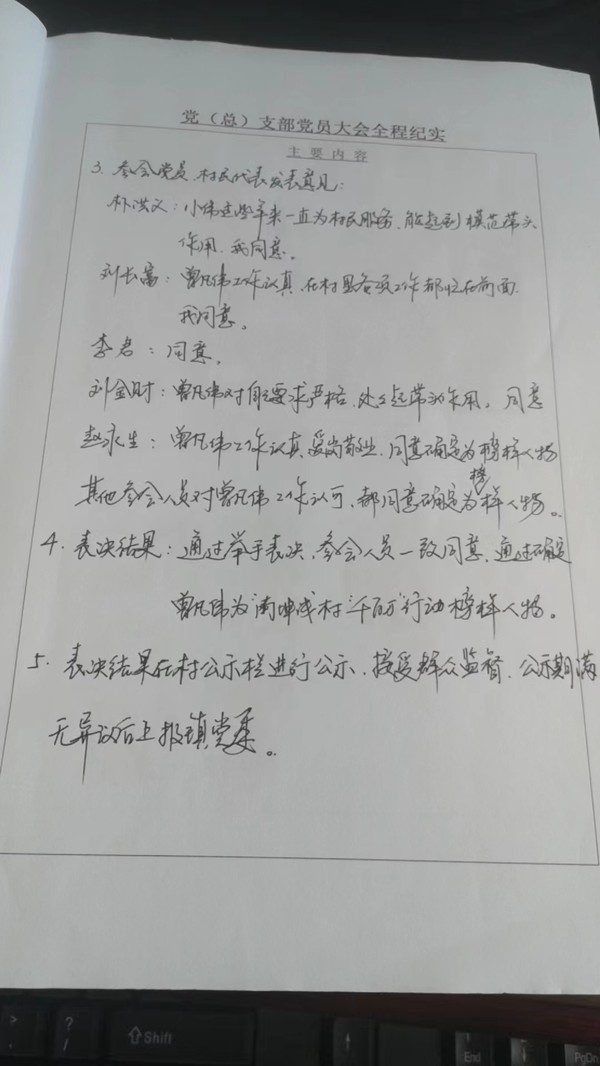 党（总）支部党员大会全程纪实
主要内容
3. 参会党员、村民代表发表意见：
朴洪义：小伟这些年来一直为村民服务，能起到模范带头
作用，我同意。
刘长富：曾凡伟工作认真，在村里各项工作都在前面，
我同意。
李君：同意。
刘金财：曾凡伟对自己要求严格，处处起带头作用。同意
赵永生：曾凡伟工作认真，爱岗敬业，同意确定为榜样人物
其他参会人员对曾凡伟工作认可，都同意确定为榜样人物。
4. 表决结果：通过举手表决，参会人员一致同意，通过确定
曾凡伟为"南坤成村"千百万"行动榜样人物。
5. 表决结果在村公示栏进行公示，接受群众监督，公示期满
无异议后上报镇党委。
Shift
End
PgDn